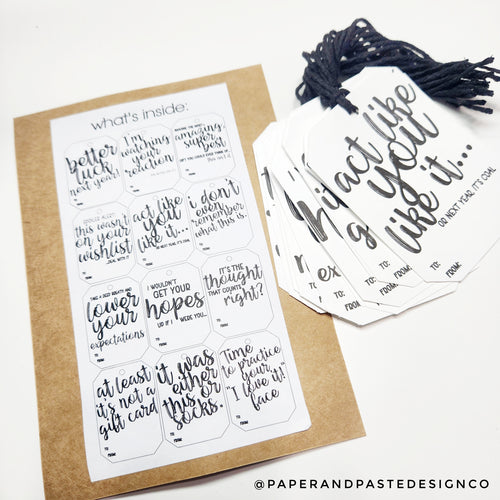 what's inside:
better
luck
next year!
TO:
FROM:
i'm
watching
your
reaction
amazing
super
best
this an E.J.
i don't
even
remember
what this is.
this wasn't
on your
wishlist
...DEAL WITH IT
act like
you
like it...
OR NEXT YEAR, IT'S COAL
TAKE A DEEP BREATH AND
lower
your
expectations
TO:
FROM:
I WOULDN'T
GET YOUR
hopes
UP IF I WERE YOU...
TO:
FROM:
IT'S THE
thought
THAT COUNTS
right?
TO:
FROM:
at least
it's not a
gift card
TO:
FROM:
it was
either
this or
socks.
TO:
FROM:
Time
to practice
your
"I love it!"
face
TO:
FROM:
act like
you
like it...
OR NEXT YEAR, IT'S COAL
TO:
FROM:
TO:
FROM:
TO:
FROM:
@PAPERANDPASTEDESIGNCO